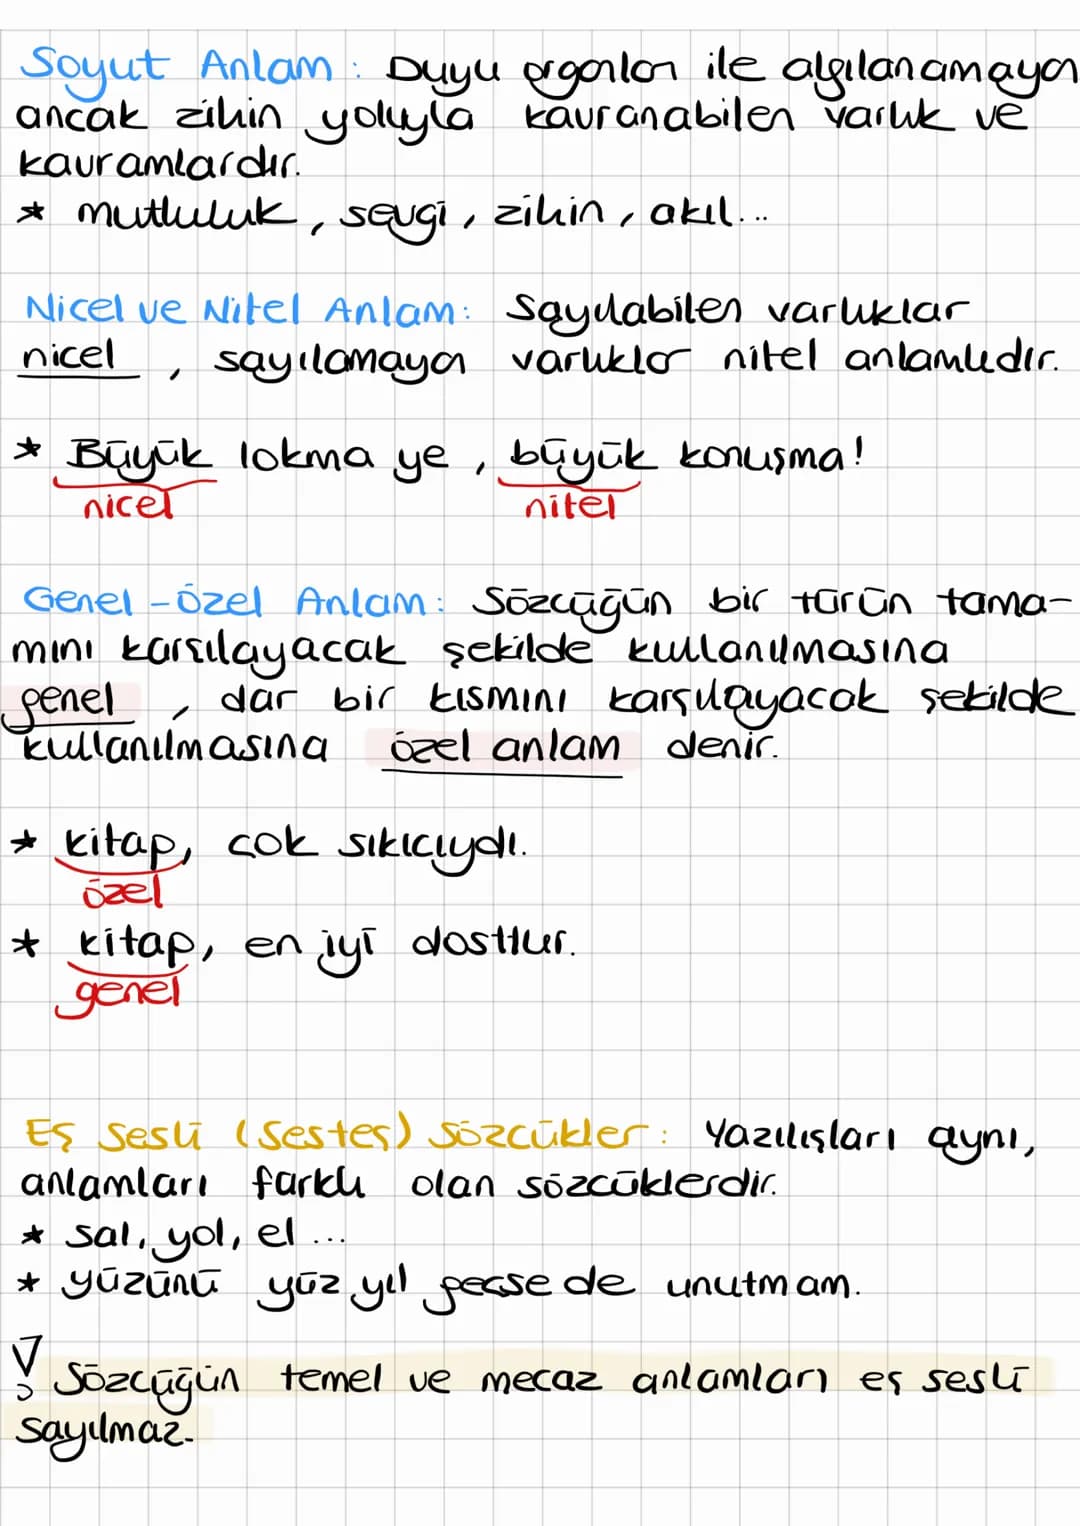 Soyut Anlam: Duyu organları ile algılanamayan
ancak zihin yoluyla kavranabilen varlık ve
kavramlardır.
* mutluluk, sevgi, zihin, akıl...
Nicel ve Nitel Anlam: Sayılabilen varlıklar
nicel, sayılamayan varlıklar nitel anlamlıdır.
* Büyük lokma ye, büyük konuşma!
nicel nitel
Genel-Özel Anlam: Sözcüğün bir türün tama-
mını karşılayacak şekilde kullanılmasına
genel, dar bir kısmını karşılayacak şekilde
kullanılmasına özel anlam denir.
* kitap, çok sıkıcıydı.
özel
* kitap, en iyi dosttur.
genel
Eş Sesli (Sesteş) Sözcükler: Yazılışları aynı,
anlamları farklı olan sözcüklerdir.
* sal, yol, el...
* yüzünü yüz yıl geçse de unutmam.
! Sözcüğün temel ve mecaz anlamları eş sesli
sayılmaz.